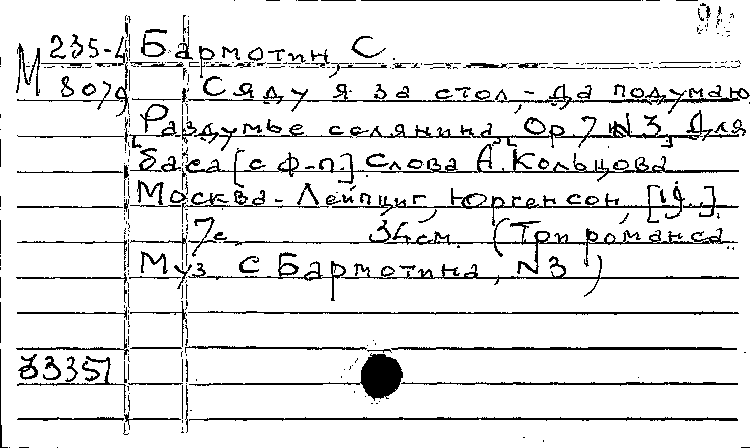 М 235-4 Бармотин, С.
8079 Сяду я за стол, - да подумаю
[Раздумье селянина] Op. 7 N 3. [Для
баса [с ф-п.] Слова А. Кольцова
Москва - Лейпциг, Юргенсон, [19..].
7с. 34см. (Три романса.
Муз. С. Бармотина, N3)
33357